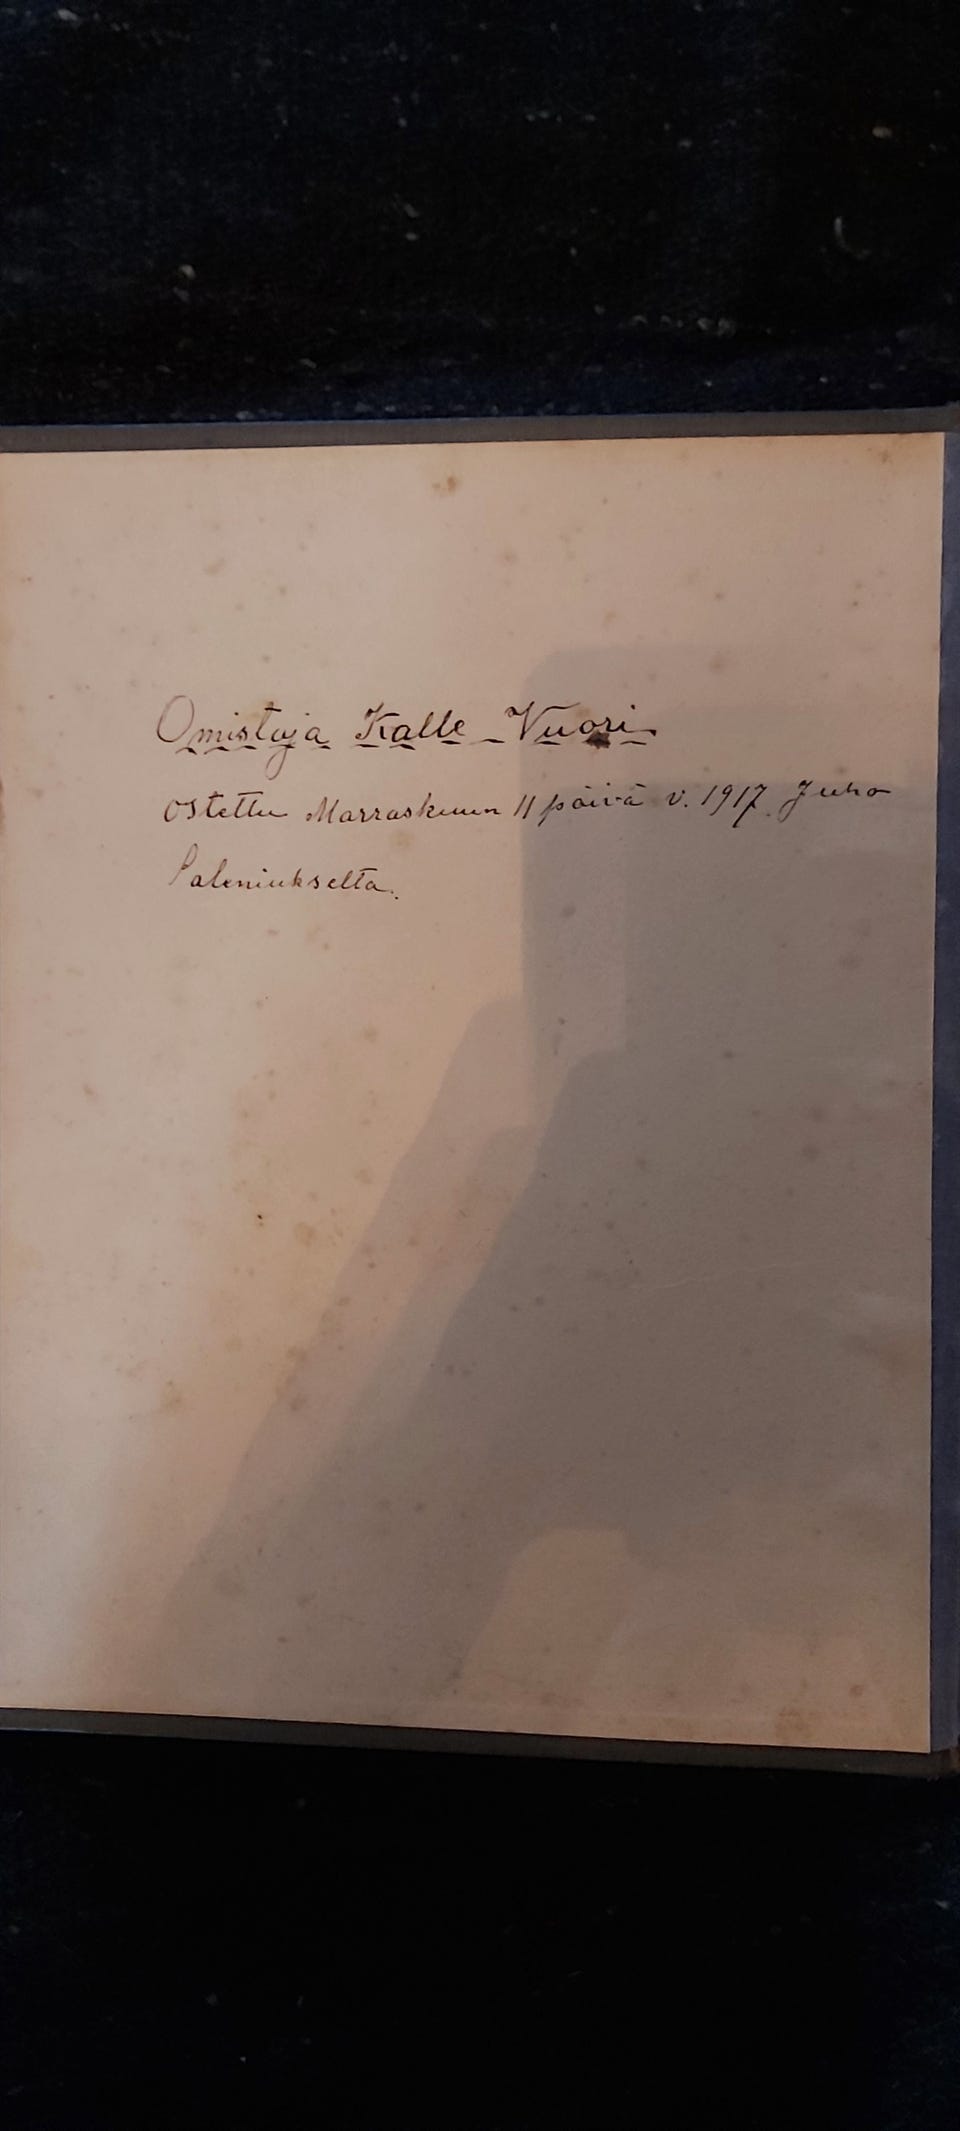 Omistaja Kalle Vuori
Ostettu Marraskuun 11 päivä v. 1917 Juho
Paleniukselta.